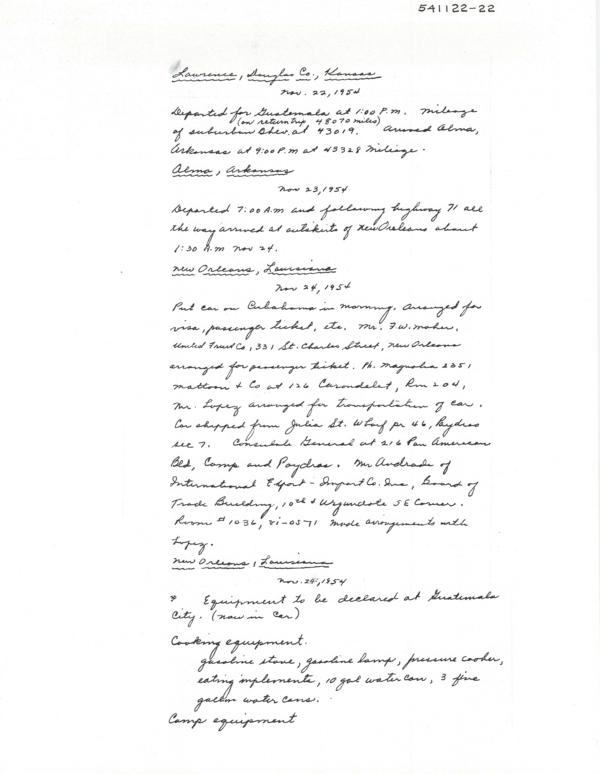 541122-22
Lawrence, Douglas Co., Kansas
Nov. 22, 1954
Departed for Guatemala at 1:00 P.M. Mileage
(on return trip, 48070 miles)
of suburban Chev. at 43019. Arrived Alma,
Arkansas at 9:00 P.M at 43328 mileage.
Alma, Arkansas
Nov 23, 1954
Departed 7:00 A.M and following highway 71 all
the way arrived at outskirts of New Orleans about
1:30 A.M Nov 24.
New Orleans, Louisiana
Nov 24, 1954
Put car on Cubahama in morning. Arranged for
visa, passenger ticket, etc. Mr. F.W. Maher,
United Fruit Co, 331 St. Charles Street, New Orleans
arranged for passenger ticket. Ph. Magnolia 2351
Mattoon & Co at 126 Carondelet, Rm 204,
Mr. Lopez arranged for transportation of car.
Car shipped from Julia St. Wharf pr 46, Poydras
sec 7. Consulate General at 216 Pan American
Bld, Camp and Poydras. Mr Andrade of
International Export-Import Co. Inc, Board of
Trade Building, 10th & SE Corner.
Room #1036, 0571 made arrangements with
Lopez.
New Orleans, Louisiana
Nov. 24, 1954
Equipment to be declared at Guatemala
City. (now in car)
Cooking equipment.
gasoline stove, gasoline lamp, pressure cooker,
eating implements, 10 gal water can, 3 five
gallon water cans.
Camp equipment